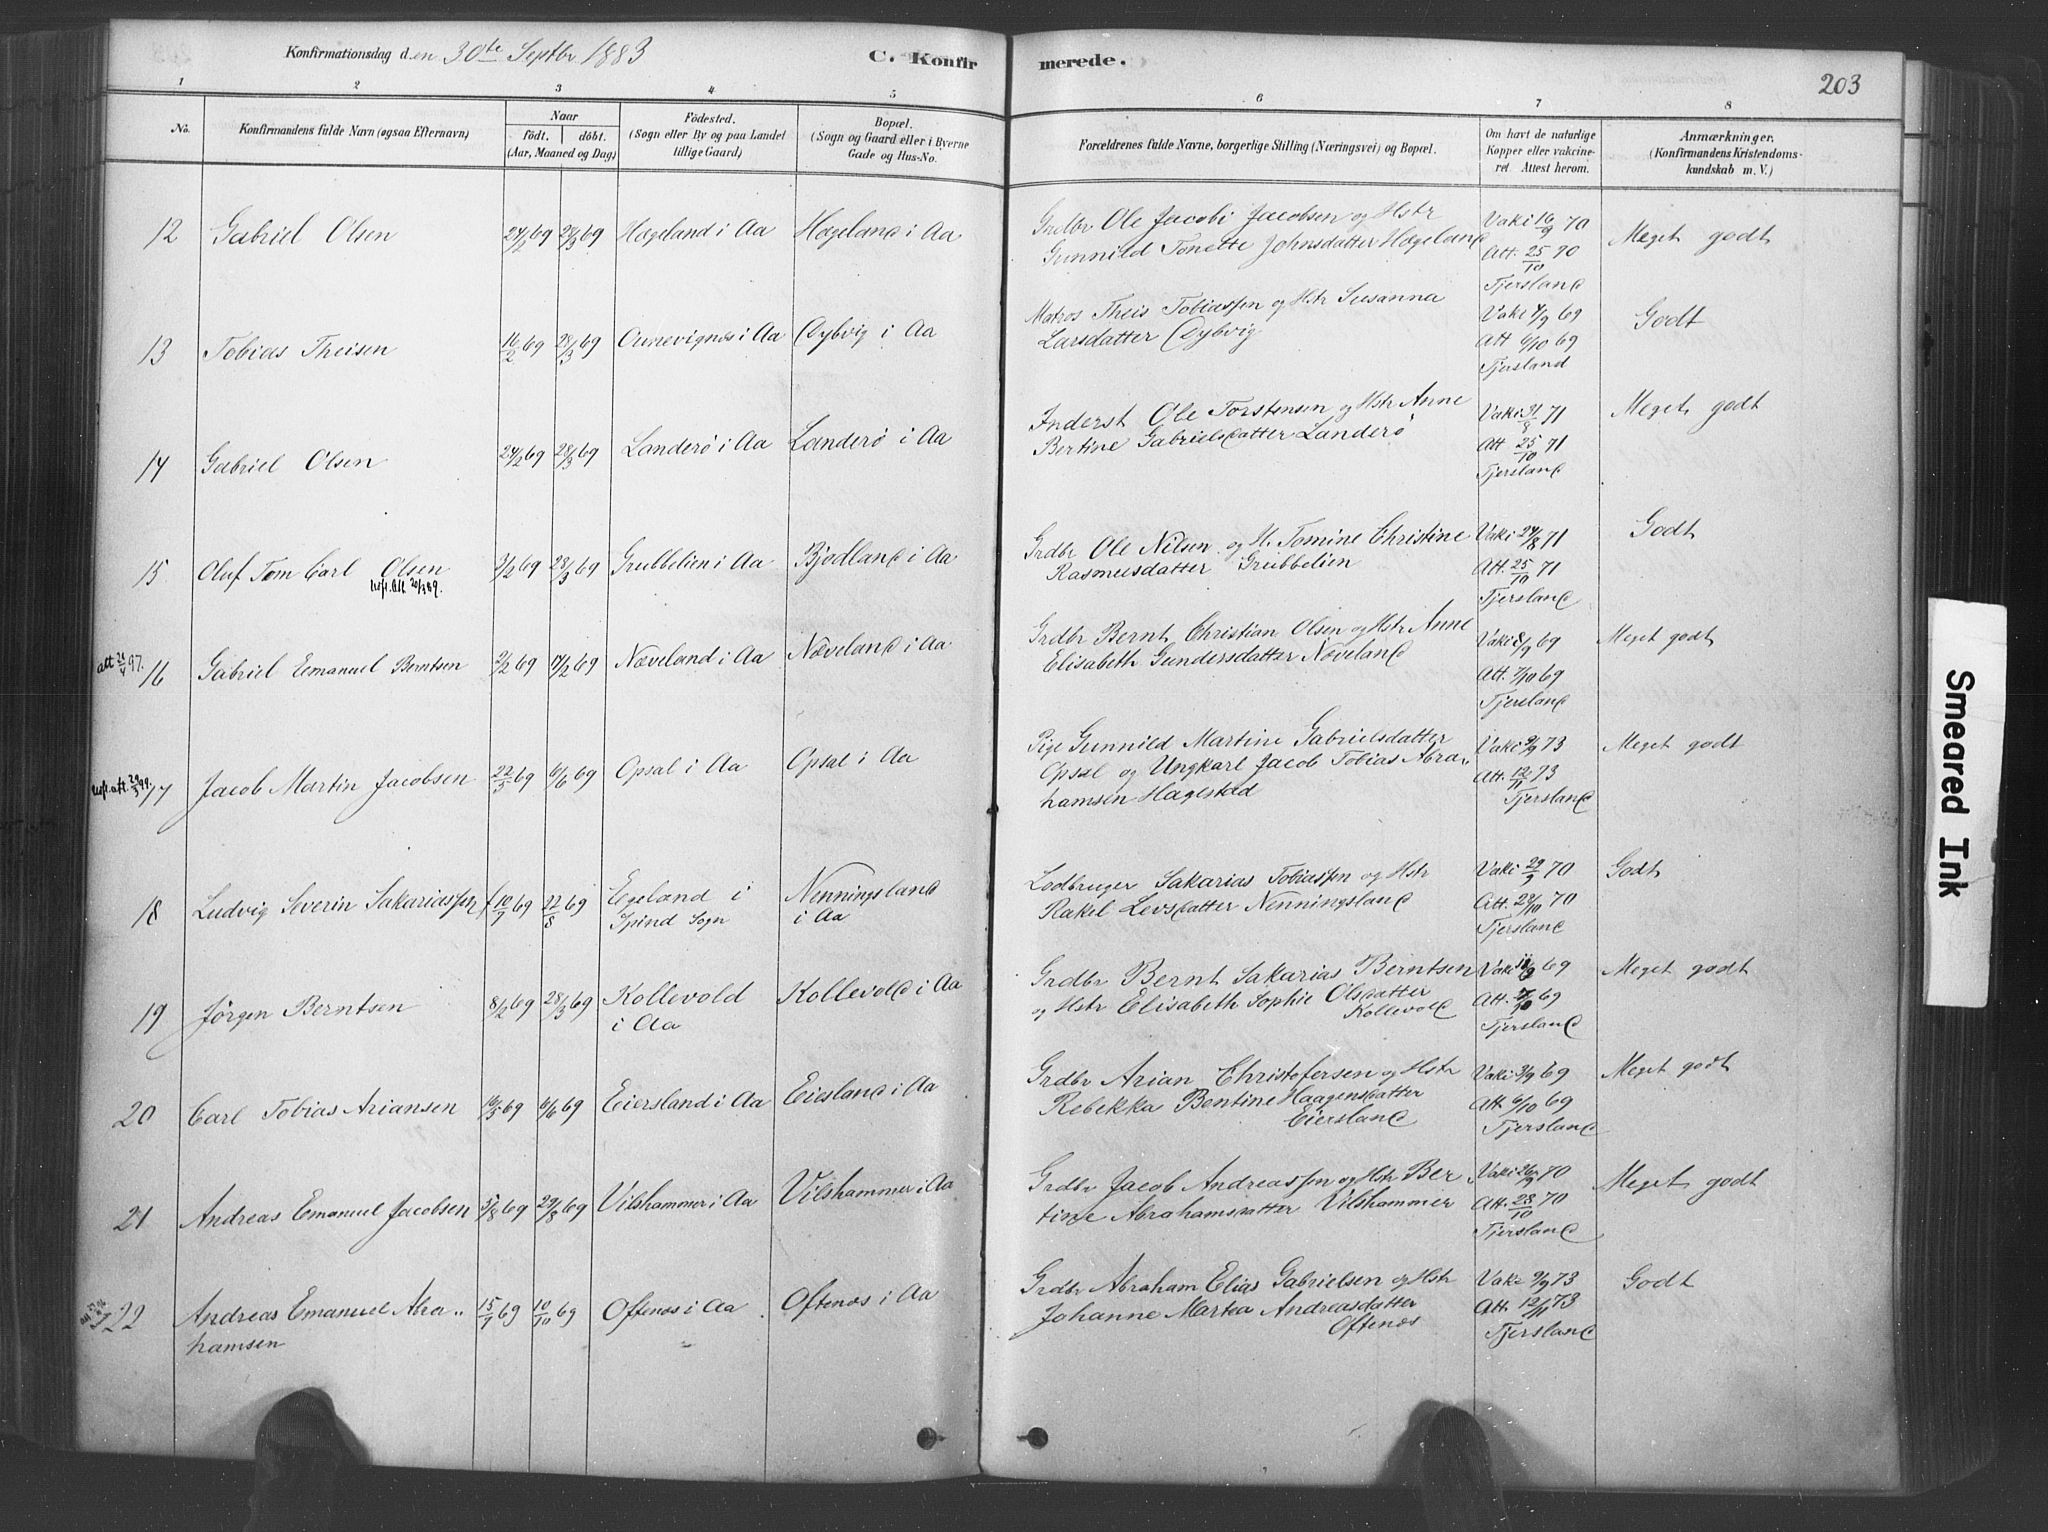 Konfirmationsdag den 30te Septbr 1883
C. Konfirmerede.
203
1 2 3 4 5 6 7 8
No.
Konfirmandens fulde Navn (ogsaa Efternavn)
Naar
födt. döbt.
(Aar, Maaned og Dag)
Födested.
(Sogn eller By og paa Landet
tillige Gaard)
Bopæl.
(Sogn og Gaard eller i Byerne
Gade og Hus-No.
Forældrenes fulde Navne, borgerlige Stilling (Næringsvei) og Bopæl.
Om havt de naturlige
Kopper eller vakcine-
ret Attest herom.
Anmærkninger.
(Konfirmandens Kristendoms-
kundskab m. V.)
12 Gabriel Olsen 24/2 69 28/3 69 Hægeland i Aa Hægeland i Aa
Grdbr Ole Jacobi Jacobsen og Hstr
Gunnild Tonette Johnsdatter Hægeland
Vaki 16/9 70
Att. 25/10 70
Tjersland
Meget godt
13 Tobias Theisen 16/2 69 28/3 69 i Aa Dybvig i Aa
Matros Theis Tobiassen og Hstr Susanna
Larsdatter Dybvig
Vaki 4/9 69
Att 6/10 69
Tjersland
Godt
14 Gabriel Olsen 24/2 69 28/3 69 Landerö i Aa Landerö i Aa
Inderst Ole Torstensen og Hstr Anne
Bertine Gabrielsdatter Landerö
Vaki 31/8 71
Att 25/10 71
Tjersland
Meget godt
15 Oluf Tom Carl Olsen 69 28/3 69 Grubbelien i Aa Bjodland i Aa
Grdbr Ole Nilsen og H. Tomine Christine
Rasmusdatter Grubbelien
Vaki 24/8 71
Att. 25/10 71
Tjersland
Godt
att 97.
16 Gabriel Emanuel Berntsen 2/2 69 17/2 69 Næveland i Aa Næveland i Aa
Grdbr Bernt Christian Olsen og Hstr Anne
Elisabeth Gundersdatter Næveland
Vaki 8/9 69
Att. 7/10 69
Tjersland
Meget godt
17 Jacob Martin Jacobsen 22/5 69 6/6 69 Opsal i Aa Opsal i Aa
Pige Gunnild Martine Gabrielsdatter
Opsal og Ungkarl Jacob Tobias Abra„
hamsen Hagestad
Vaki 9/9 73
Att. 12/11 73
Tjersland
Meget godt
18 Ludvig Severin Sakariassen f 10/7 69 22/8 69 Egeland i
Spind Sogn
Nenningsland
i Aa
Lodbruger Sakarias Tobiassen og Hstr
Rakel Levsdatter Nenningsland
Vaki 29/9 70
Att. 28/10 70
Tjersland
Godt
19 Jörgen Berntsen 8/2 69 28/3 69 Kollevold
i Aa
Kollevold i Aa
Grdbr Bernt Sakarias Berntsen
og Hstr Elisabeth Sophie Olsdatter
Kollevold
Vaki 69
Att. 69
Tjersland
Meget godt
20 Carl Tobias Ariansen 16/5 69 6/6 69 Eiersland i Aa Eiesland i Aa
Grdbr Arian Christofersen og Hstr
Rebekka Bentine Haagensdatter
Eiersland
Vaki 3/9 69
Att 6/10 69
Tjersland
Meget godt
21 Andreas Emanuel Jacobsen 5/8 69 29/8 69 Vilshammer i Aa Vilshammer i Aa
Grdbr Jacob Andreassen og Hstr Ber„
tine Abrahamsdatter Vilshammer
Vaki 26/9 70
Att. 28/10 70
Tjersland
Meget godt
22 Andreas Emanuel Abra„
hamsen
15/7 69 10/10 69 Oftenæs i Aa Oftenæs i Aa
Grdbr Abraham Elias Gabrielsen og Hstr
Johanne Martea Andreasdatter
Oftenæs
Vaki 9/9 73
Att. 12/11 73
Tjersland
Godt
Smeared Ink